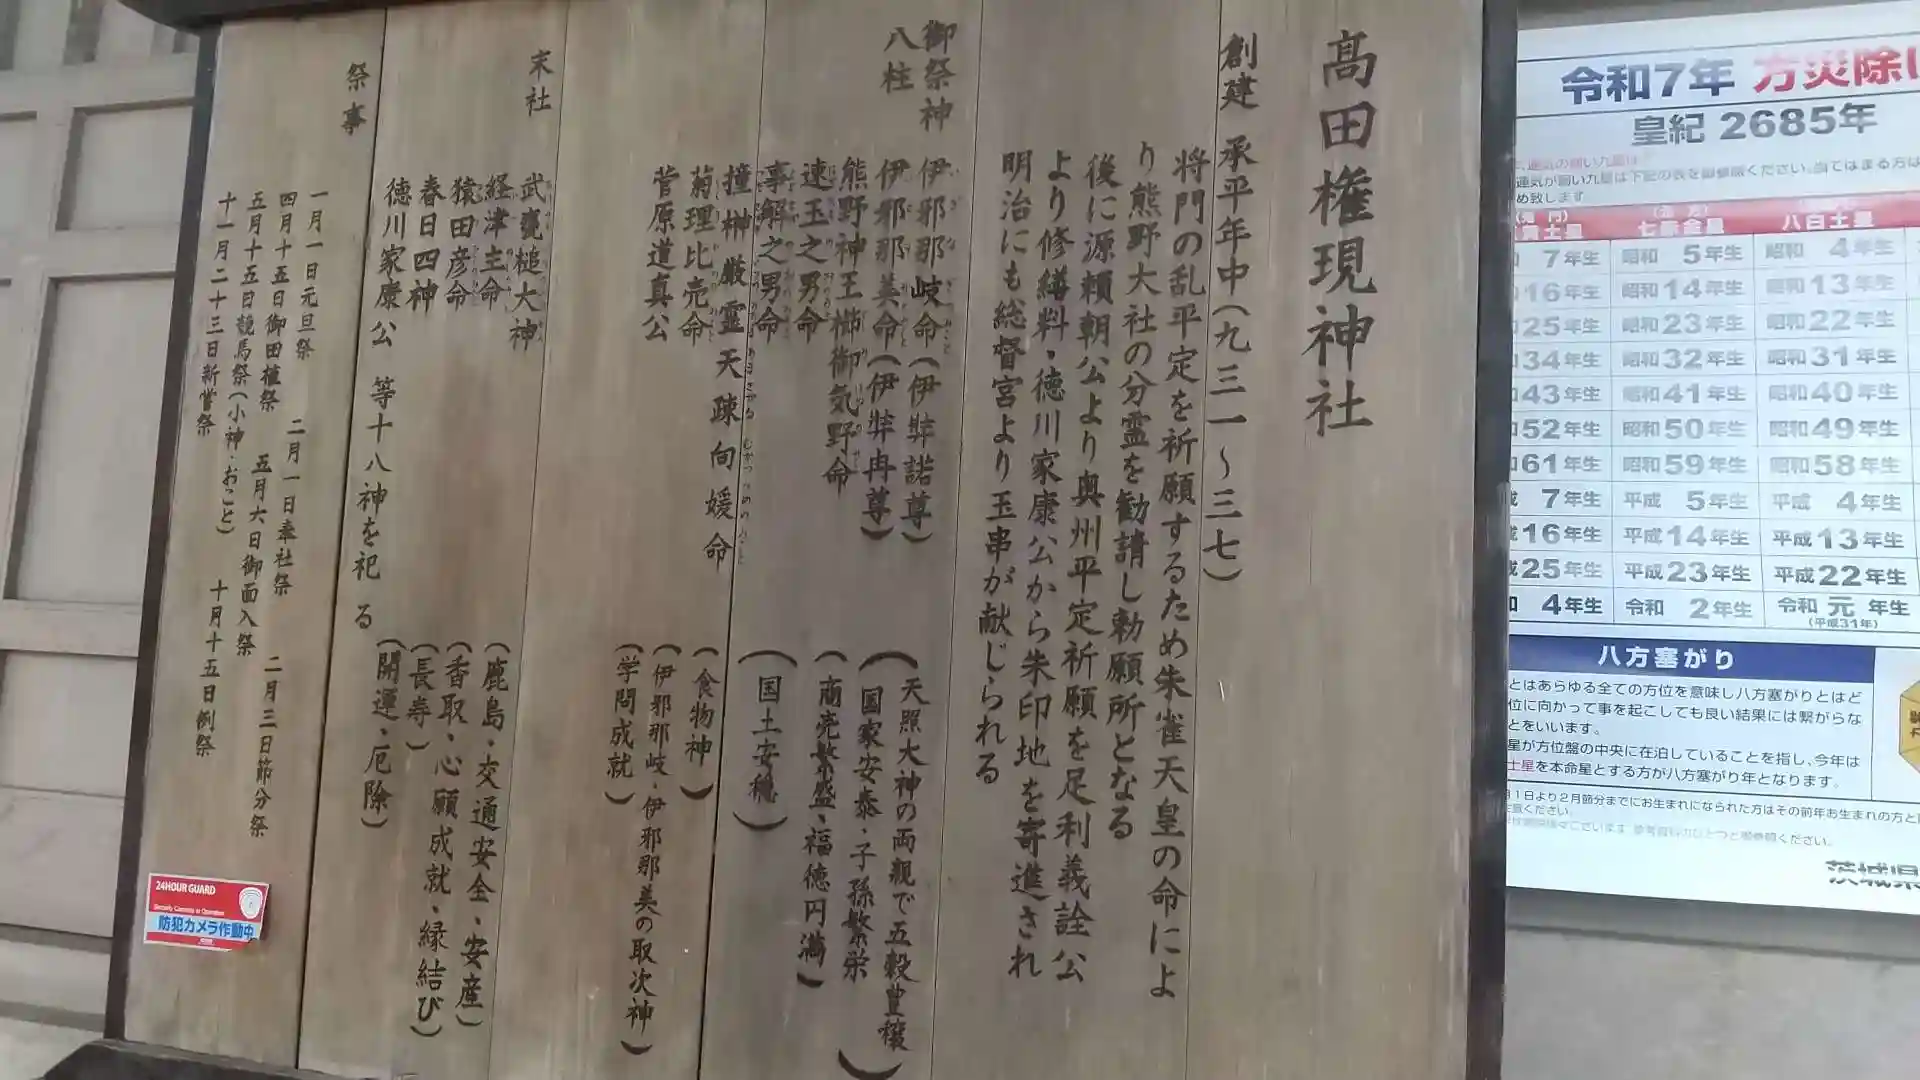 高田権現神社
創建 承平年中(九三一〜三七)
将門の乱平定を祈願するため朱雀天皇の命によ
り熊野大社の分霊を勧請し勅願所となる
後に源頼朝公より奥州平定祈願を足利義詮公
より修繕料・徳川家康公から朱印地を寄進され
明治にも総督宮より玉串が献じられる
御祭神
八柱
伊邪那岐命(伊弉諾尊)
伊邪那美命(伊弉冉尊)
(天照大神の両親で五穀豊穣
国家安泰・子孫繁栄)
熊野神王櫛御気野命
(商売繁盛・福徳円満)
速玉之男命
事解之男命
(国土安穏)
撞榊厳霊天疎向媛命
(食物神)
菊理比売命
(伊邪那岐・伊邪那美の取次神)
菅原道真公
(学問成就)
末社
武甕槌大神
(鹿島・交通安全・安産)
経津主命
(香取・心願成就・縁結び)
猿田彦命
(長寿)
春日四神
(開運・厄除)
徳川家康公 等十八神を祀る
祭事
一月一日元旦祭 二月一日奉社祭 二月三日節分祭
四月十五日御田植祭 五月六日御面入祭
五月十五日競馬祭(小神・おこと) 十月十五日例祭
十一月二十三日新嘗祭
24HOUR GUARD
Security Camera in Operation
防犯カメラ作動中
令和7年 方災除
皇紀 2685年
運気が弱い九星は下記の表を御参照ください。当てはまる方は
め致します
七赤金星 八白土星
7年生 昭和 5年生 昭和 4年生
16年生 昭和14年生 昭和13年生
25年生 昭和23年生 昭和22年生
34年生 昭和32年生 昭和31年生
43年生 昭和41年生 昭和40年生
52年生 昭和50年生 昭和49年生
61年生 昭和59年生 昭和58年生
7年生 平成 5年生 平成 4年生
16年生 平成14年生 平成13年生
25年生 平成23年生 平成22年生
4年生 令和 2年生 令和 元 年生
(平成31年)
八方塞がり
とはあらゆる全ての方位を意味し八方塞がりとはど
位に向かって事を起こしても良い結果には繋がらな
とをいいます。
星が方位盤の中央に在泊していることを指し、今年は
土星を本命星とする方が八方塞がり年となります。
月1日より2月節分までにお生まれになられた方はその前年お生まれの方と
注意ください。
茨城県